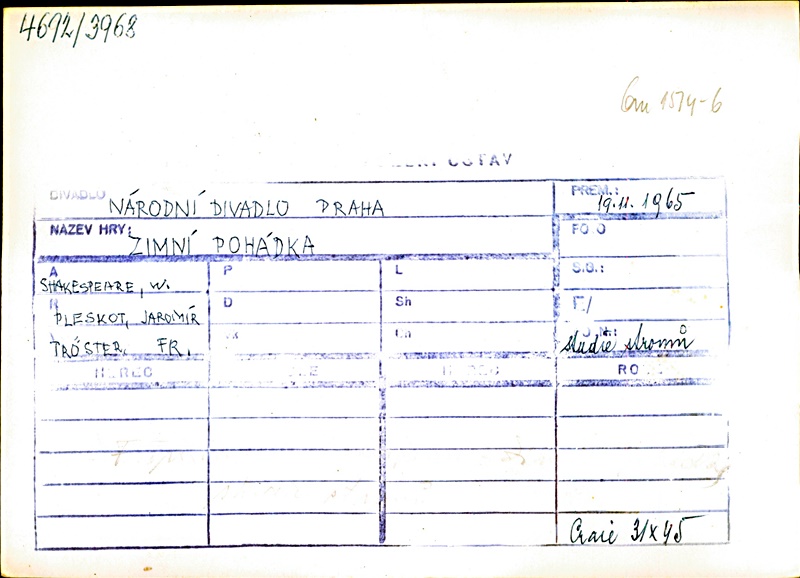 4672/3968
1574-6
ÚSTAV
DIVADLO NÁRODNÍ DIVADLO PRAHA
PREM.: 19.11.1965
NÁZEV HRY: ZIMNÍ POHÁDKA
FOTO
A SHAKESPEARE, W.
P
L
S.B.:
PLESKOT, JAROMÍR
D
Sh
F./
TRÖSTER, FR.
studie stromů
HEREC
HEREC